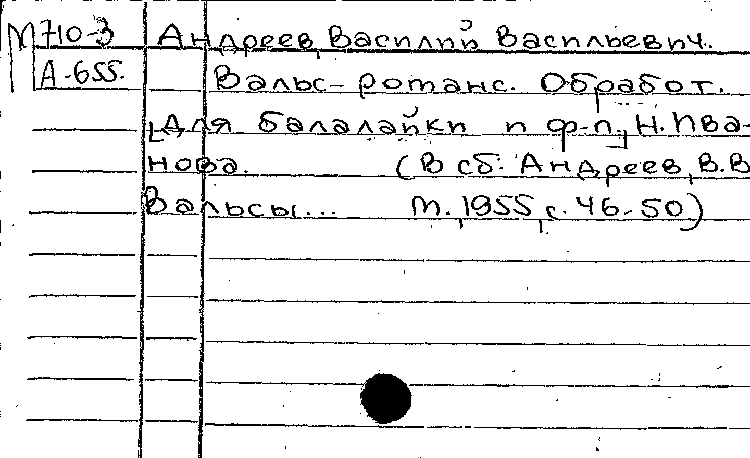 М710-3 Андреев, Василий Васильевич.
А-655. Вальс-романс. Обработ.
[для балалайки и ф-п.] Н. Ива-
нова. (В сб: Андреев, В.В
Вальсы... М., 1955, с. 46-50)